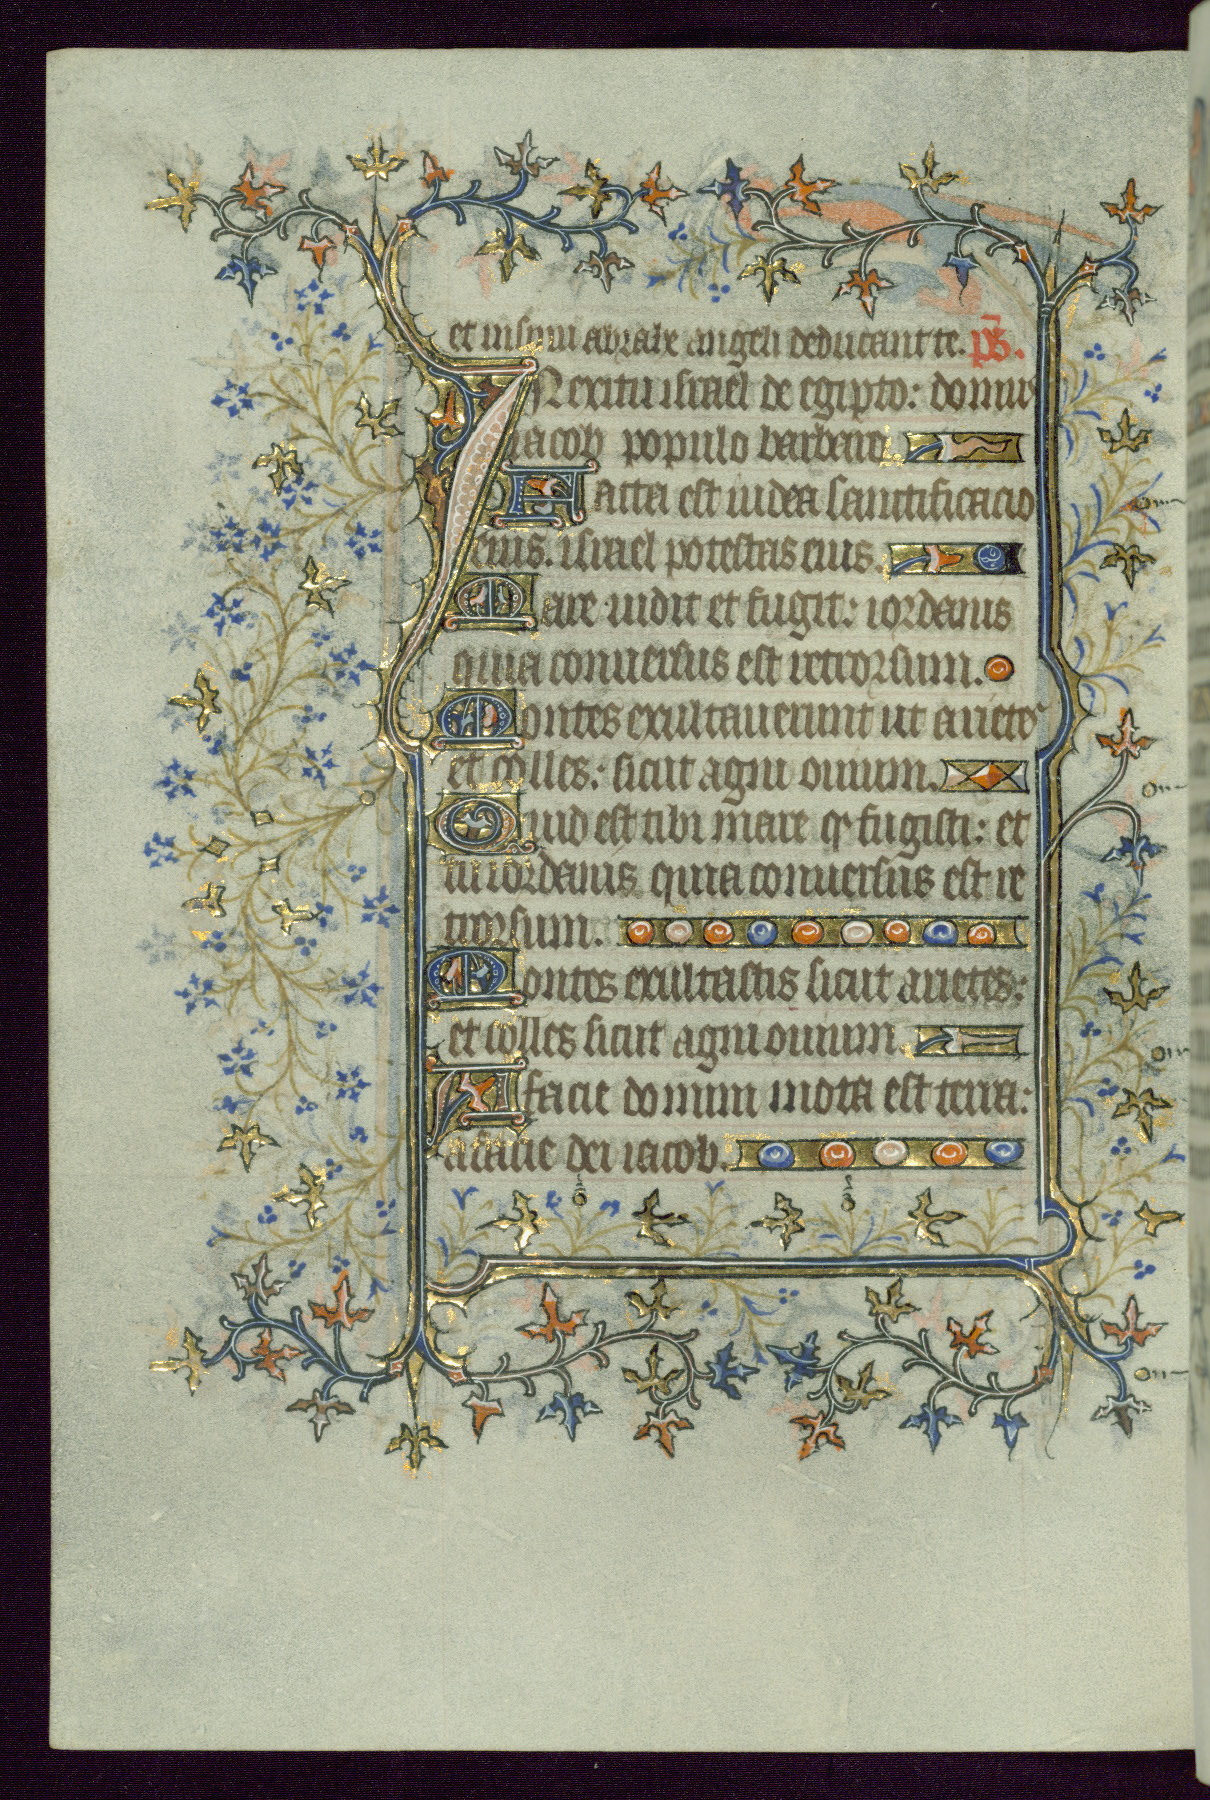 et in sinu abrahe angeli deducant te. ps̄.
IN exitu israel de egipto: domus
iacob populo barbaro.
Facta est iudea sanctificacio
eius. israel potestas eius.
Mare uidit et fugit: iordanis
quia conuersus est retrorsum.
Montes exultauerunt ut arietes
et colles: sicut agni ouium.
Quid est tibi mare qr fugisti: et
tu iordanis quia conuersus est re
trorsum.
Montes exultastis sicut arietes:
et colles sicut agni ouium
A facie domini mota est terra:
a facie dei iacob.